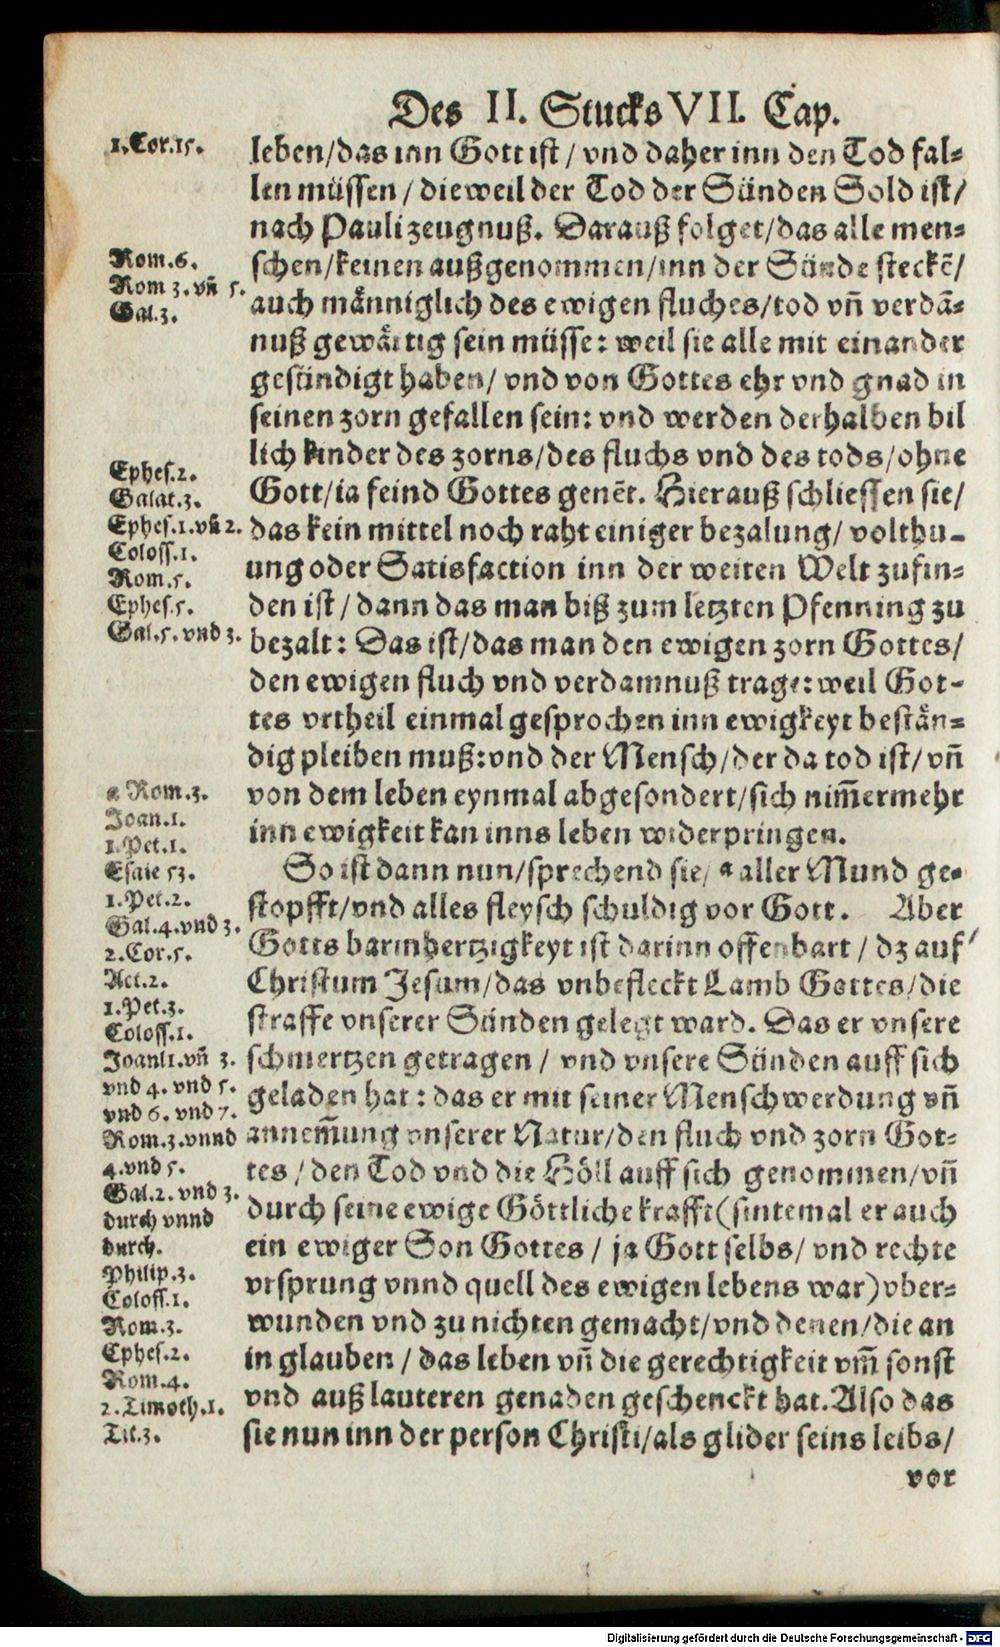 Des II. Stucks VII. Cap.
1. Cor. 15.
Rom. 6.
Rom 3. vñ 5.
Gal. 3.
Ephes. 2.
Galat. 3.
Ephes. 1. vñ 2.
Coloss. 1.
Rom. 5.
Ephes. 5.
Gal. 5. vnd 3.
a Rom. 3.
Joan. 1.
1. Pet. 1.
Esaie 53.
1. Pet. 2.
Gal. 4. vnd 3.
2. Cor. 5.
Act. 2.
1. Pet. 3.
Coloss. 1.
Joanl1. vñ 3.
vnd 4. vnd 5.
vnd 6. vnd 7.
Rom. 3. vnnd
4. vnd 5.
Gal. 2. vnd 3.
durch vnnd
durch.
Philip. 3.
Coloss. 1.
Rom. 3.
Ephes. 2.
Rom. 4.
2. Timoth. 1.
Tit. 3.
leben/das inn Gott ist / vnd daher inn den Tod fal⸗
len müssen / dieweil der Tod der Sünden Sold ist/
nach Pauli zeugnuß. Darauß folget/das alle men⸗
schen/keinen außgenommen/inn der Sünde steckẽ/
auch männiglich des ewigen fluches/tod vñ verdã⸗
nuß gewärtig sein müsse: weil sie alle mit einander
gesündigt haben/ vnd von Gottes ehr vnd gnad in
seinen zorn gefallen sein: vnd werden derhalben bil
lich kinder des zorns/des fluchs vnd des tods/ohne
Gott/ia feind Gottes genẽt. Hierauß schliessen sie/
das kein mittel noch raht einiger bezalung/ volthu-
ung oder Satisfaction inn der weiten Welt zufin⸗
den ist / dann das man biß zum letzten Pfenning zu
bezalt: Das ist/das man den ewigen zorn Gottes/
den ewigen fluch vnd verdamnuß trage: weil Got-
tes vrtheil einmal gesprochen inn ewigkeyt bestän⸗
dig pleiben muß: vnd der Mensch/der da tod ist/ vñ
von dem leben eynmal abgesondert/sich nim̃ermehr
inn ewigkeit kan inns leben widerpringen.
So ist dann nun/sprechend sie/ a aller Mund ge⸗
stopfft/vnd alles fleysch schuldig vor Gott. Aber
Gotts barmhertzigkeyt ist darinn offenbart / dz auf
Christum Jesum/das vnbefleckt Lamb Gottes/die
straffe vnserer Sünden gelegt ward. Das er vnsere
schmertzen getragen / vnd vnsere Sünden auff sich
geladen hat: das er mit seiner Menschwerdung vñ
annem̃ung vnserer Natur/den fluch vnd zorn Got⸗
tes / den Tod vnd die Höll auff sich genommen/vñ
durch seine ewige Göttliche krafft (sintemal er auch
ein ewiger Son Gottes / ja Gott selbs/ vnd rechte
vrsprung vnnd quell des ewigen lebens war) vber⸗
wunden vnd zu nichten gemacht/vnd denen/die an
in glauben / das leben vñ die gerechtigkeit vm̃ sonst
vnd auß lauteren genaden geschenckt hat. Also das
sie nun inn der person Christi/als glider seins leibs/
vor
Digitalisierung gefördert durch die Deutsche Forschungsgemeinschaft - DFG